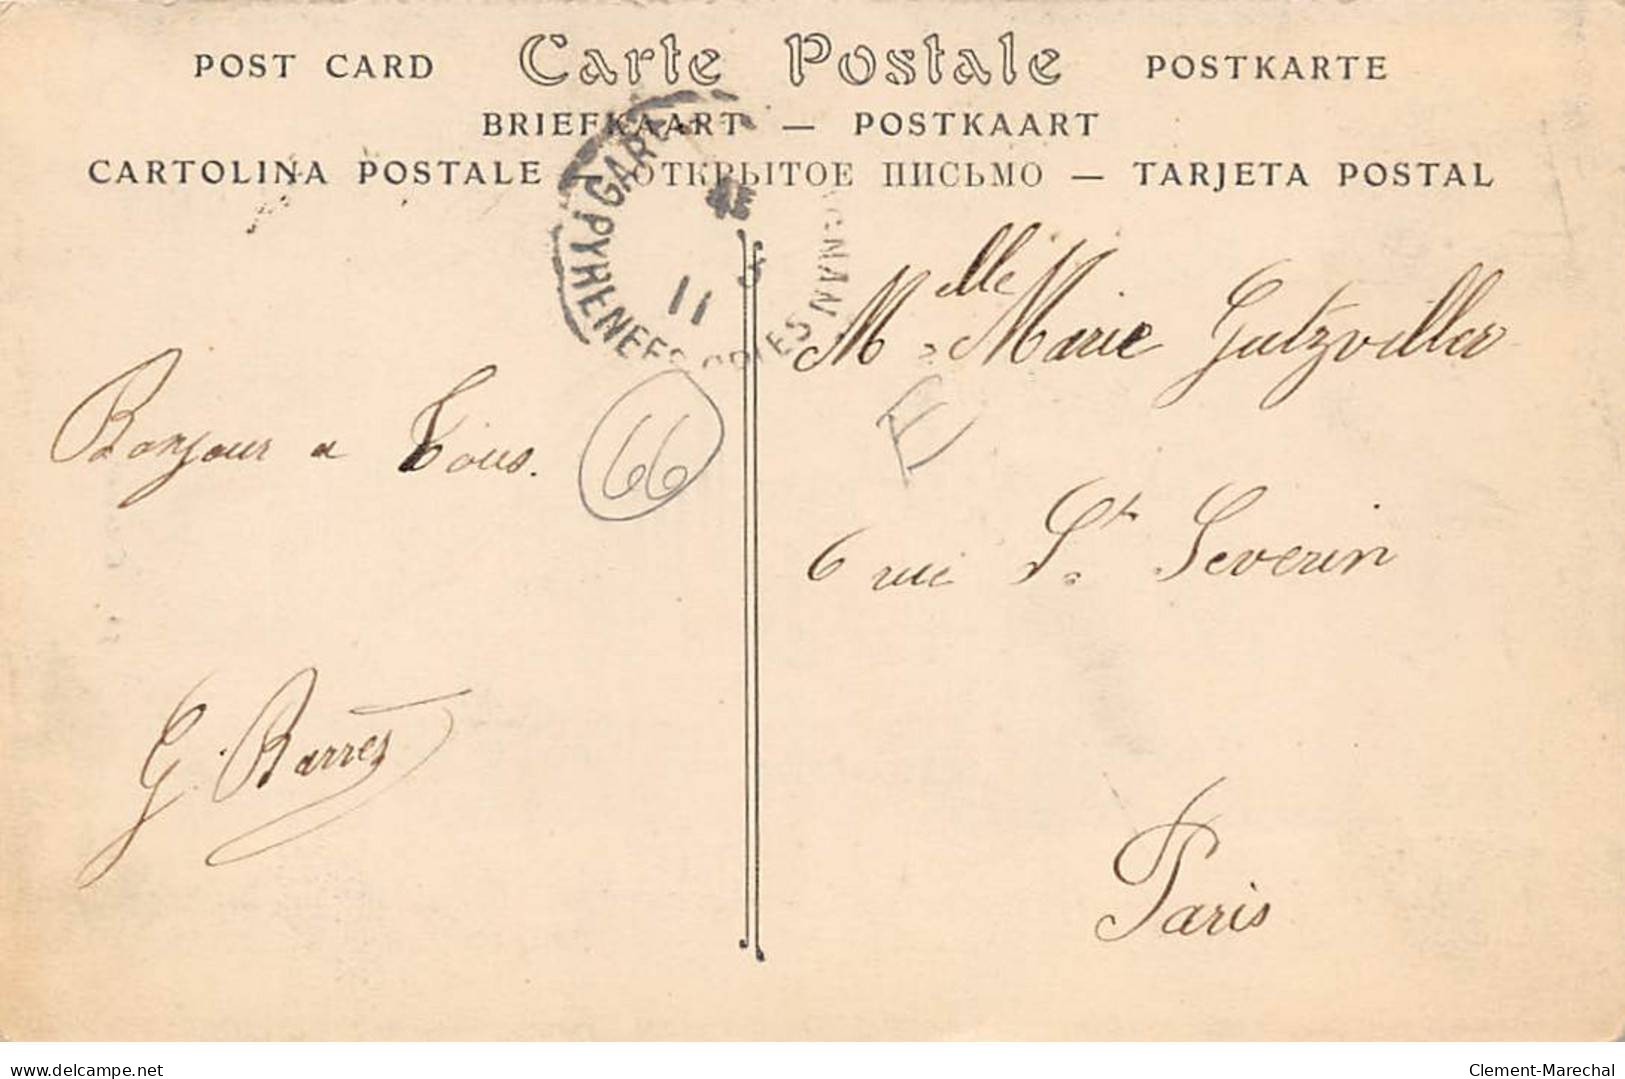 POST CARD Carte Postale POSTKARTE
BRIEFKAART — POSTKAART
CARTOLINA POSTALE — ОТКРЫТОЕ ПИСЬМО — TARJETA POSTAL
GARE
PYRENEES
11
Mlle Marie Gutzviller
Bonjour a Tous.
66
E
6 rue St. Severin
G. Barres
Paris
delcampe.net
Clement-Marechal